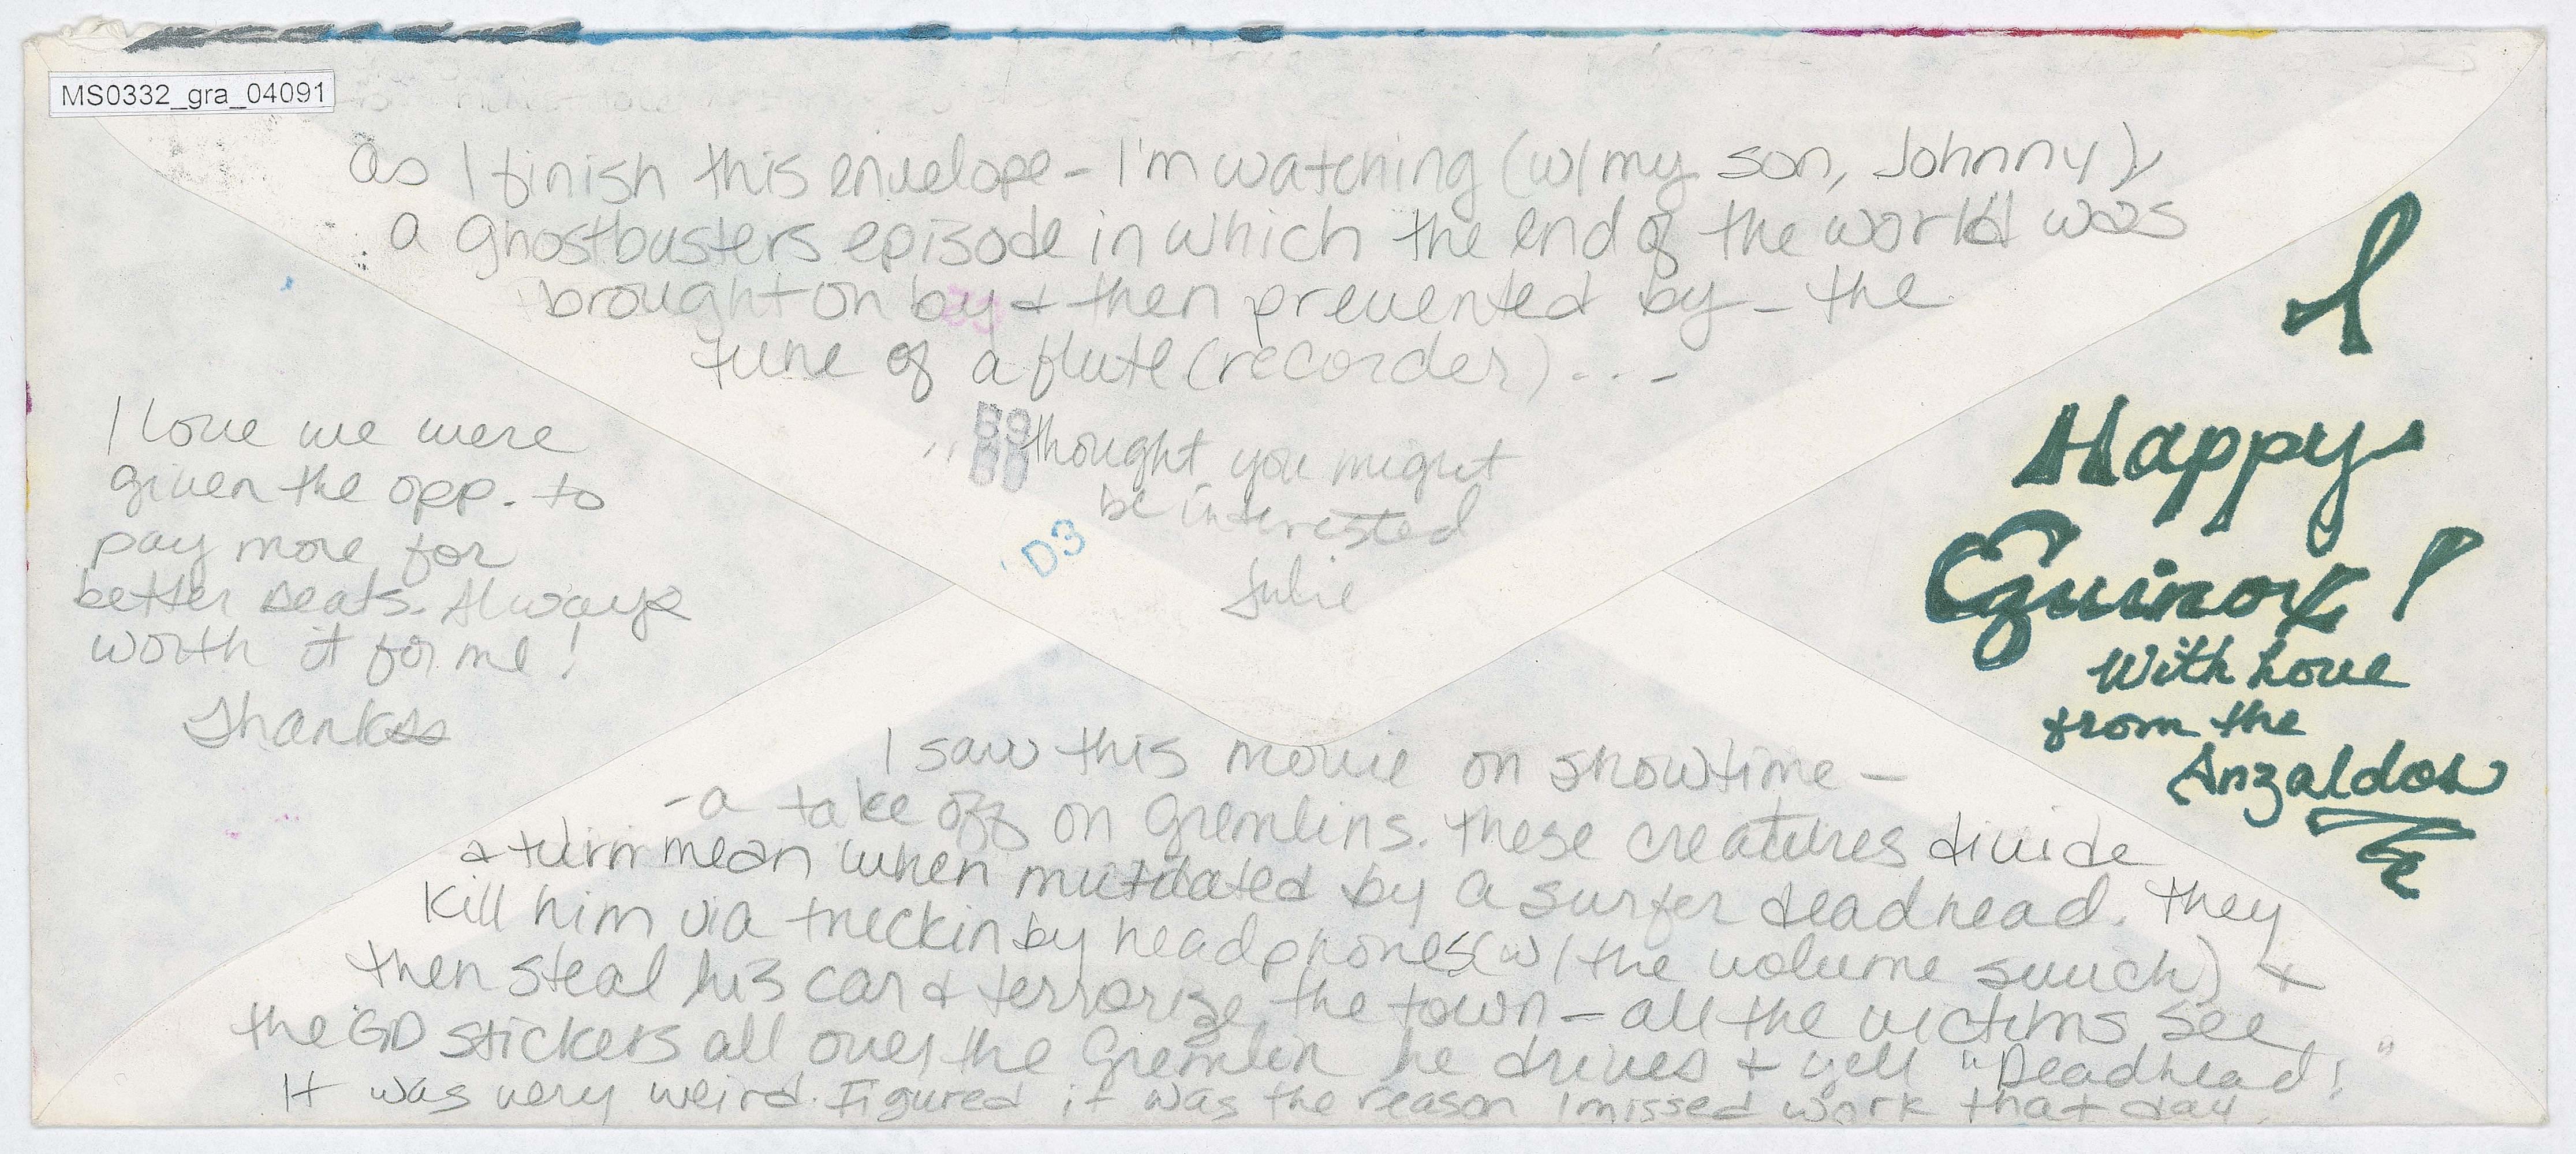 MS0332_gra_04091
as I finish this envelope - I'm watching (w/my son, Johnny)
a Ghostbusters episode in which the end of the world was
brought on by & then prevented by - the
tune of a flute (recorder) ...
thought you might
be interested
Julie
D3
I love we were
given the opp. to
pay more for
better seats. Always
worth it for me!
Thanks
I saw this movie on showtime -
- a take off on Gremlins. These creatures divide
& turn mean when mutated by a surfer deadhead. They
kill him via by headphones (w/the volume ) &
then steal his car & terrorize the town - all the victims see
the GD stickers all over the Gremlin he drives & yell "Deadhead!"
It was very weird. Figured it was the reason I missed work that day.
Happy
Equinox!
With Love
from the
Anzaldos